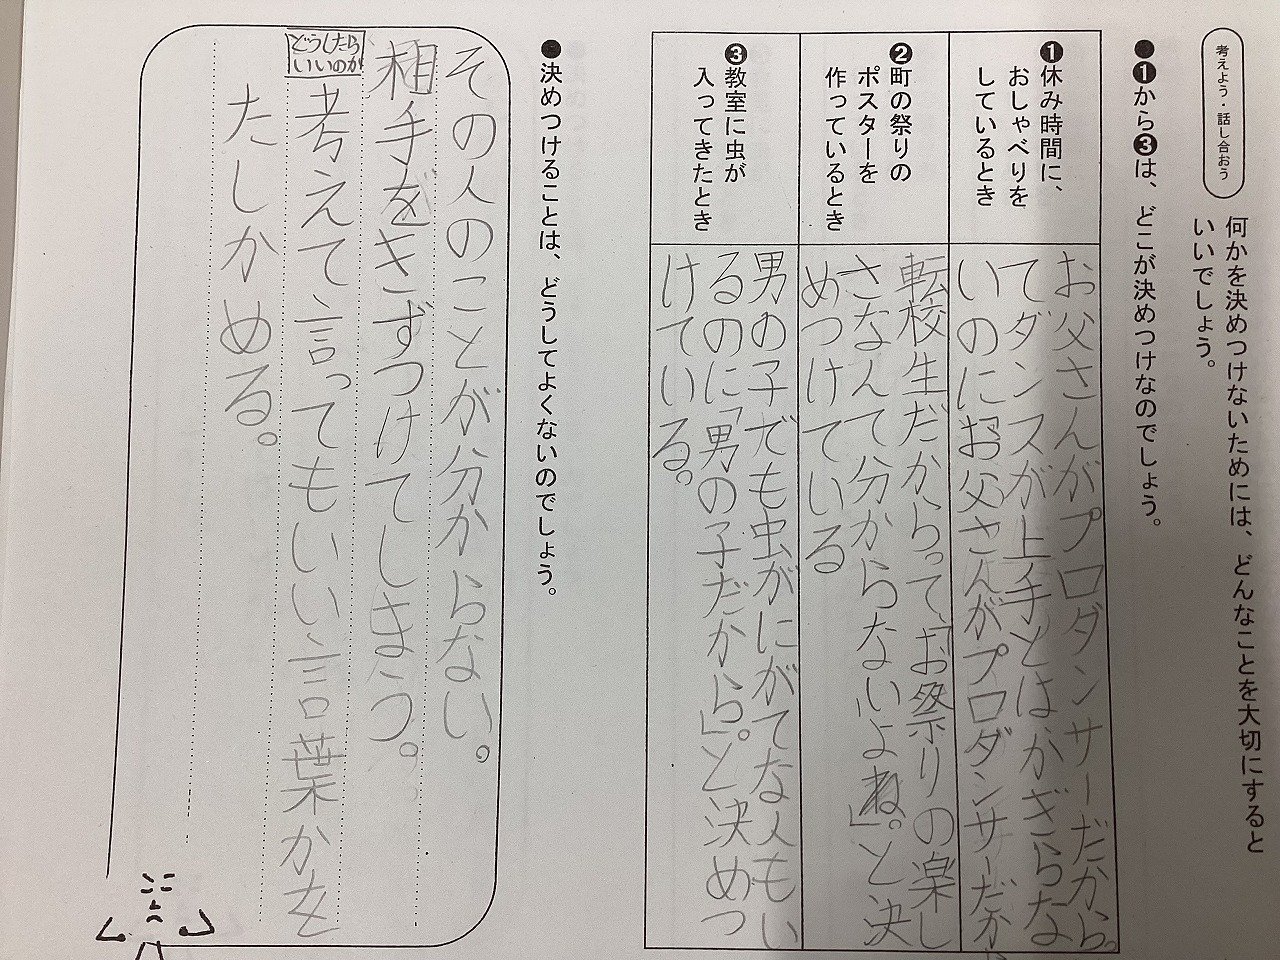 考えよう・話し合おう
何かを決めつけないためには、どんなことを大切にすると
いいでしょう。
●❶から❸は、どこが決めつけなのでしょう。
❶休み時間に、
おしゃべりを
しているとき
お父さんがプロダンサーだから。
てダンスが上手とはかぎらな
いのにお父さんがプロダンサーだか
❷町の祭りの
ポスターを
作っているとき
転校生だからって、「お祭りの楽し
さなんて分からないよね。」と決
めつけている
❸教室に虫が
入ってきたとき
男の子でも虫がにがてな人もい
るのに「男の子だから」。と決めつ
けている。
●決めつけることは、どうしてよくないのでしょう。
その人のことが分からない。
相手をきずつけてしまう。
どうしたら
いいのか
考えて言ってもいい言葉かを
たしかめる。